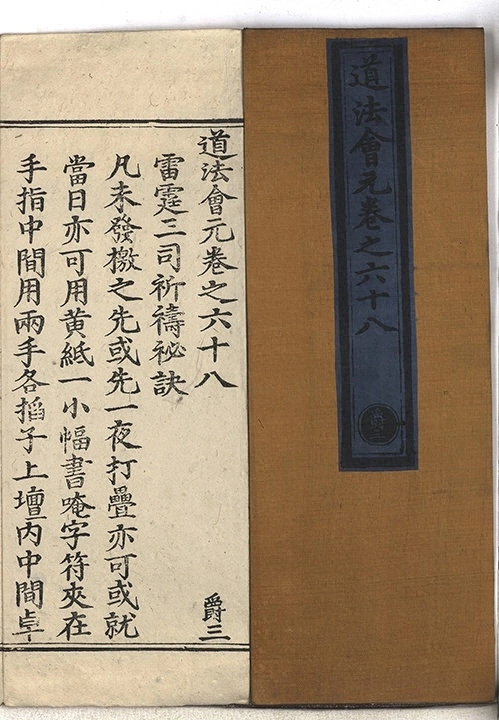 道法會元卷之六十八
道法會元卷之六十八
爵三
雷霆三司祈禱祕訣
凡未發檄之先或先一夜打疊亦可或就
當日亦可用黄紙一小幅書唵字符夾在
手指中間用兩手各搯子上壇内中間卓